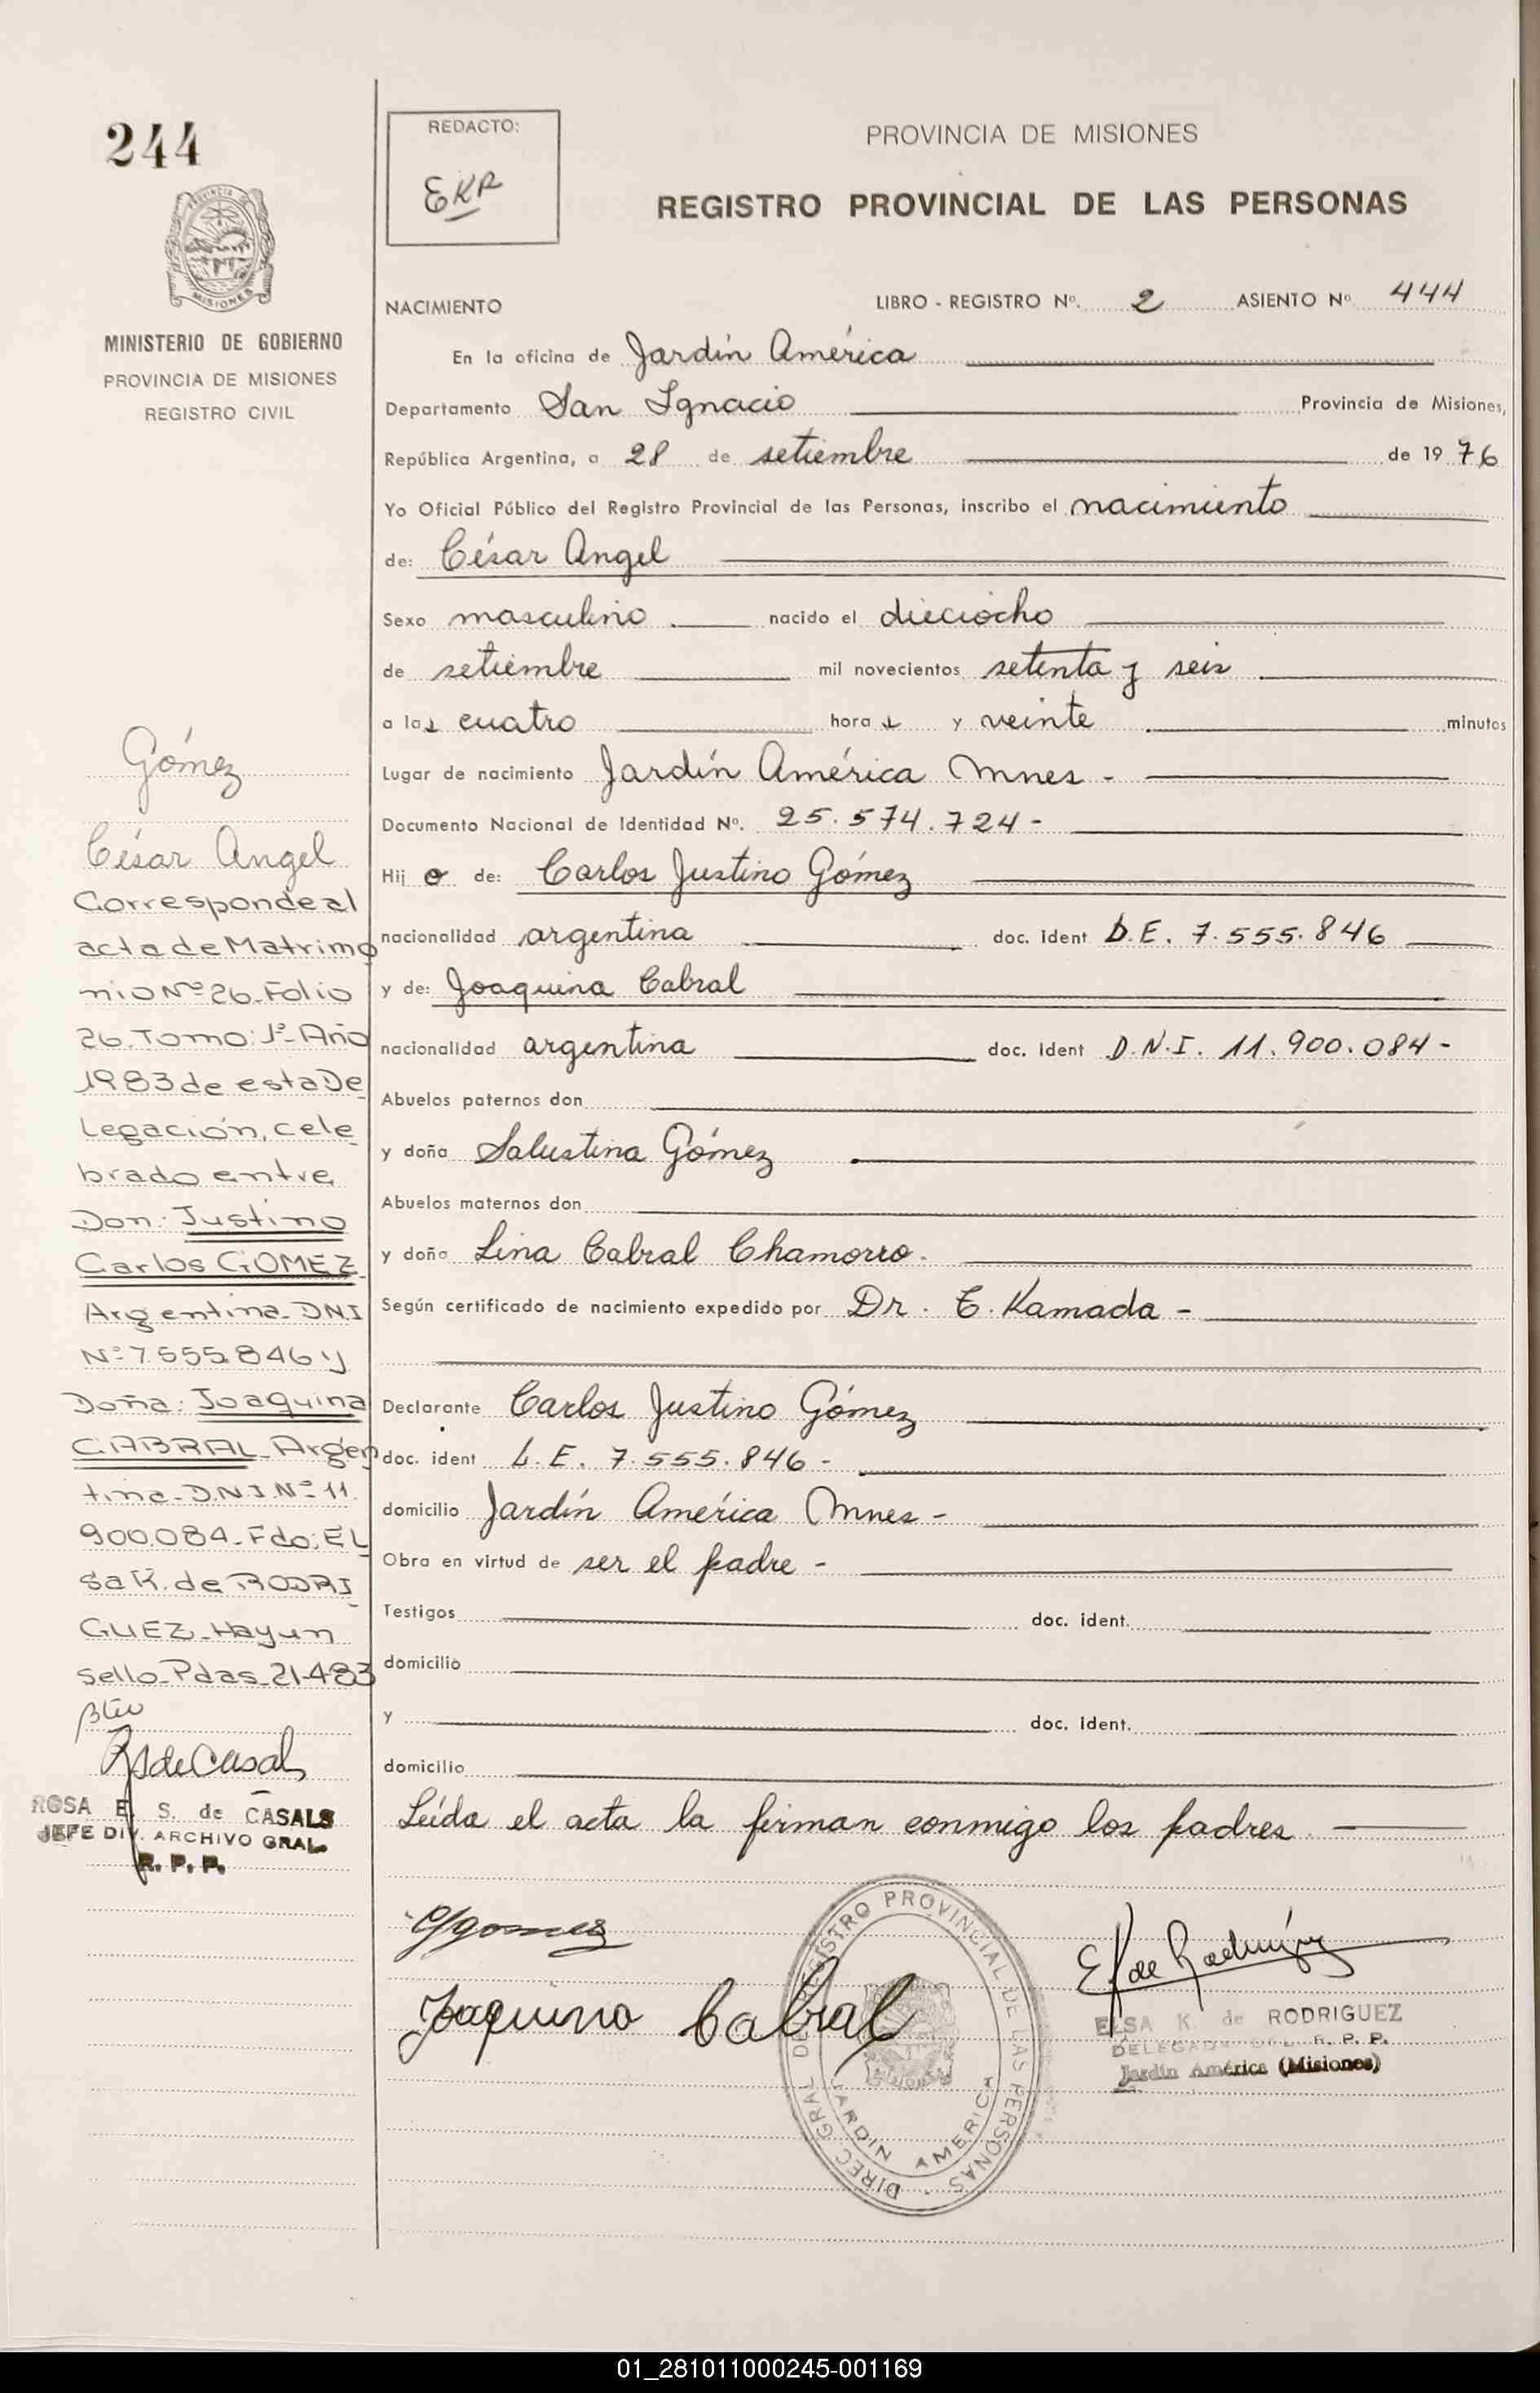 244
MINISTERIO DE GOBIERNO
PROVINCIA DE MISIONES
REGISTRO CIVIL
Gómez
César Angel
Corresponde al
acta de Matrimo
nio Nº 26. Folio
26. Tomo: 1º- Año
1983 de esta De
legación, cele
brado entre
Don: Justino
Carlos GOMEZ
Argentina- D.N.I
Nº 7.555.846 y
Doña: Joaquina
CABRAL- Argen
tina- D.N.I. Nº 11.
900.084- Fdo: EL
sa K. de RODRI
GUEZ- Hay un
sello- Pdas- 21-4-83
ROSA E. S. de CASALS
JEFE DIV. ARCHIVO GRAL.
R. P. P.
REDACTO:
EKR
PROVINCIA DE MISIONES
REGISTRO PROVINCIAL DE LAS PERSONAS
NACIMIENTO LIBRO - REGISTRO Nº. 2 ASIENTO Nº 444
En la oficina de Jardín América
Departamento San Ignacio Provincia de Misiones,
República Argentina, a 28 de setiembre de 19 76
Yo Oficial Público del Registro Provincial de las Personas, inscribo el nacimiento
de: César Angel
Sexo masculino nacido el dieciocho
de setiembre mil novecientos setenta y seis
a las cuatro horas y veinte minutos
Lugar de nacimiento Jardín América Mnes -
Documento Nacional de Identidad Nº. 25.574.724 -
Hijo de: Carlos Justino Gómez
nacionalidad argentina doc. ident L.E. 7.555.846
y de: Joaquina Cabral
nacionalidad argentina doc. ident D.N.I. 11.900.084 -
Abuelos paternos don
y doña Salustina Gómez
Abuelos maternos don
y doña Lina Cabral Chamorro.
Según certificado de nacimiento expedido por Dr. C. Kamada -
Declarante Carlos Justino Gómez
doc. ident L.E. 7.555.846 -
domicilio Jardín América Mnes -
Obra en virtud de ser el padre -
Testigos doc. ident.
domicilio
y doc. ident.
domicilio
Leída el acta la firman conmigo los padres
Joaquina Cabral
DIREC. GRAL DEL REGISTRO PROVINCIAL DE LAS PERSONAS
JARDIN AMERICA
ELSA K. de RODRIGUEZ
DELEGADA DEL R. P. P.
Jardín América (Misiones)
01_281011000245-001169